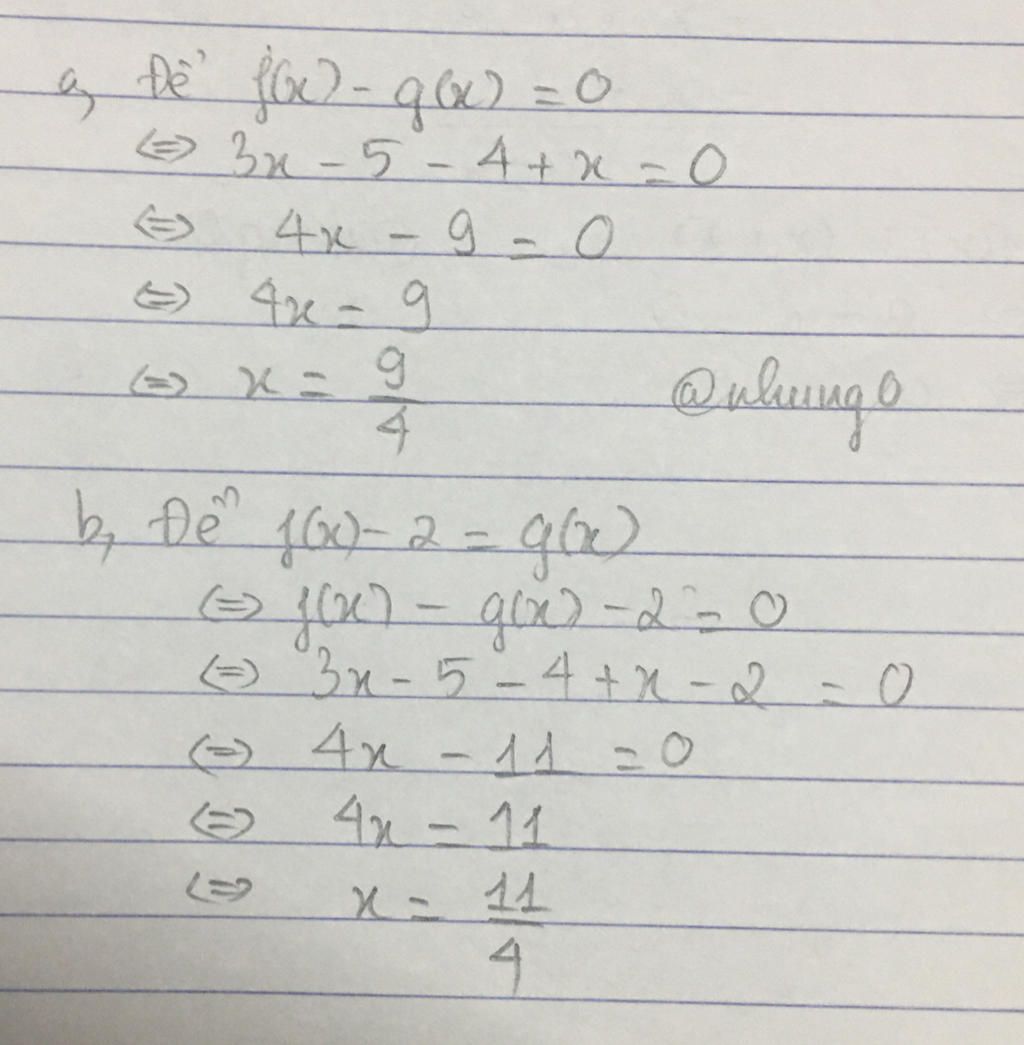 a, Để f(x) - g(x) = 0
⇔ 3x - 5 - 4 + x = 0
⇔ 4x - 9 = 0
⇔ 4x = 9
⇔ x = 9/4
@nhungo
b, Để f(x) - 2 = g(x)
⇔ f(x) - g(x) - 2 = 0
⇔ 3x - 5 - 4 + x - 2 = 0
⇔ 4x - 11 = 0
⇔ 4x = 11
⇔ x = 11/4